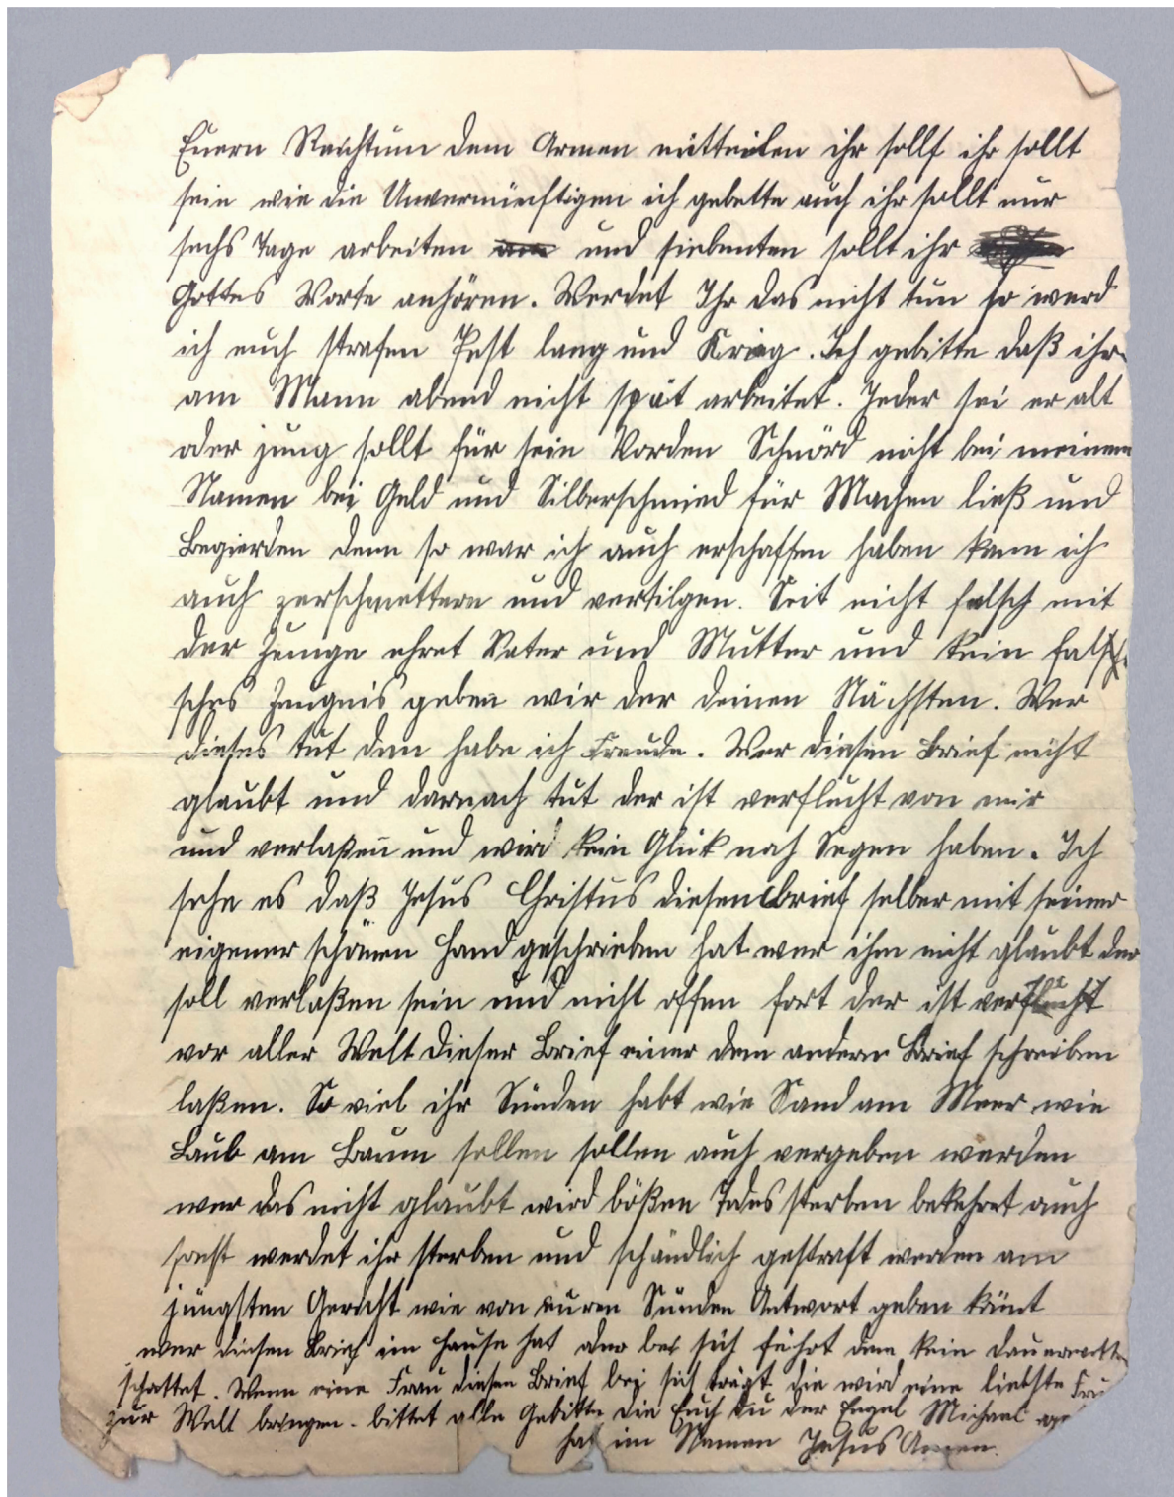 Euern Reichtum dem Armen mitteilen ihr sollt ihr sollt
sein wie die Unvernünftigen ich gebette auch ihr sollt nur
sechs Tage arbeiten und siebenten sollt ihr
Gottes Worte anhören. Werdet Ihr das nicht tun so werd
ich euch strafen Pest lang und Krieg. Ich gebitte daß ihr
am Mann abend nicht spät arbeitet. Jeder sei er alt
oder jung sollt für sein Vorden Schnörd nicht bei meinem
Namen bei Geld und Silberschmied für Machen ließ und
Begierden denn so war ich auch erschaffen haben kann ich
auch zerschmettern und vertilgen. Seit nicht falsch mit
der Zunge ehret Vater und Mutter und kein falsch-
sches Zeugnis geben wir der deinen Nächsten. Wer
dieses tut dem habe ich Freude. Wer diesen Brief nicht
glaubt und darnach tut der ist verflucht von mir
und verlaßen und wird kein Glük noch Segen haben. Ich
sehe es daß Jesus Christus diesen Brief selber mit seiner
eigener schönen Hand geschrieben hat wer ihm nicht glaubt der
soll verlaßen sein und nicht offen fort der ist verflucht
vor aller Welt dieser Brief einer dem andern Brief schreiben
laßen. So viel ihr Sünden habt wie Sand am Meer wie
Laub am Baum sollen sollen auch vergeben werden
wer das nicht glaubt wird bößen Todes sterben bekehret auch
sonst werdet ihr sterben und schändlich gestraft werden am
jüngsten Gericht wie von euren Sünden Antwort geben könnt
wer diesen Brief im Hause hat oder bei sich führt dem kein
schattet. Wenn eine Frau diesen Brief bei sich trägt die wird eine liebste
zur Welt bringen. bittet alle Gebitte die Euch du der Engel Michael
hat im Namen Jesus Amen.